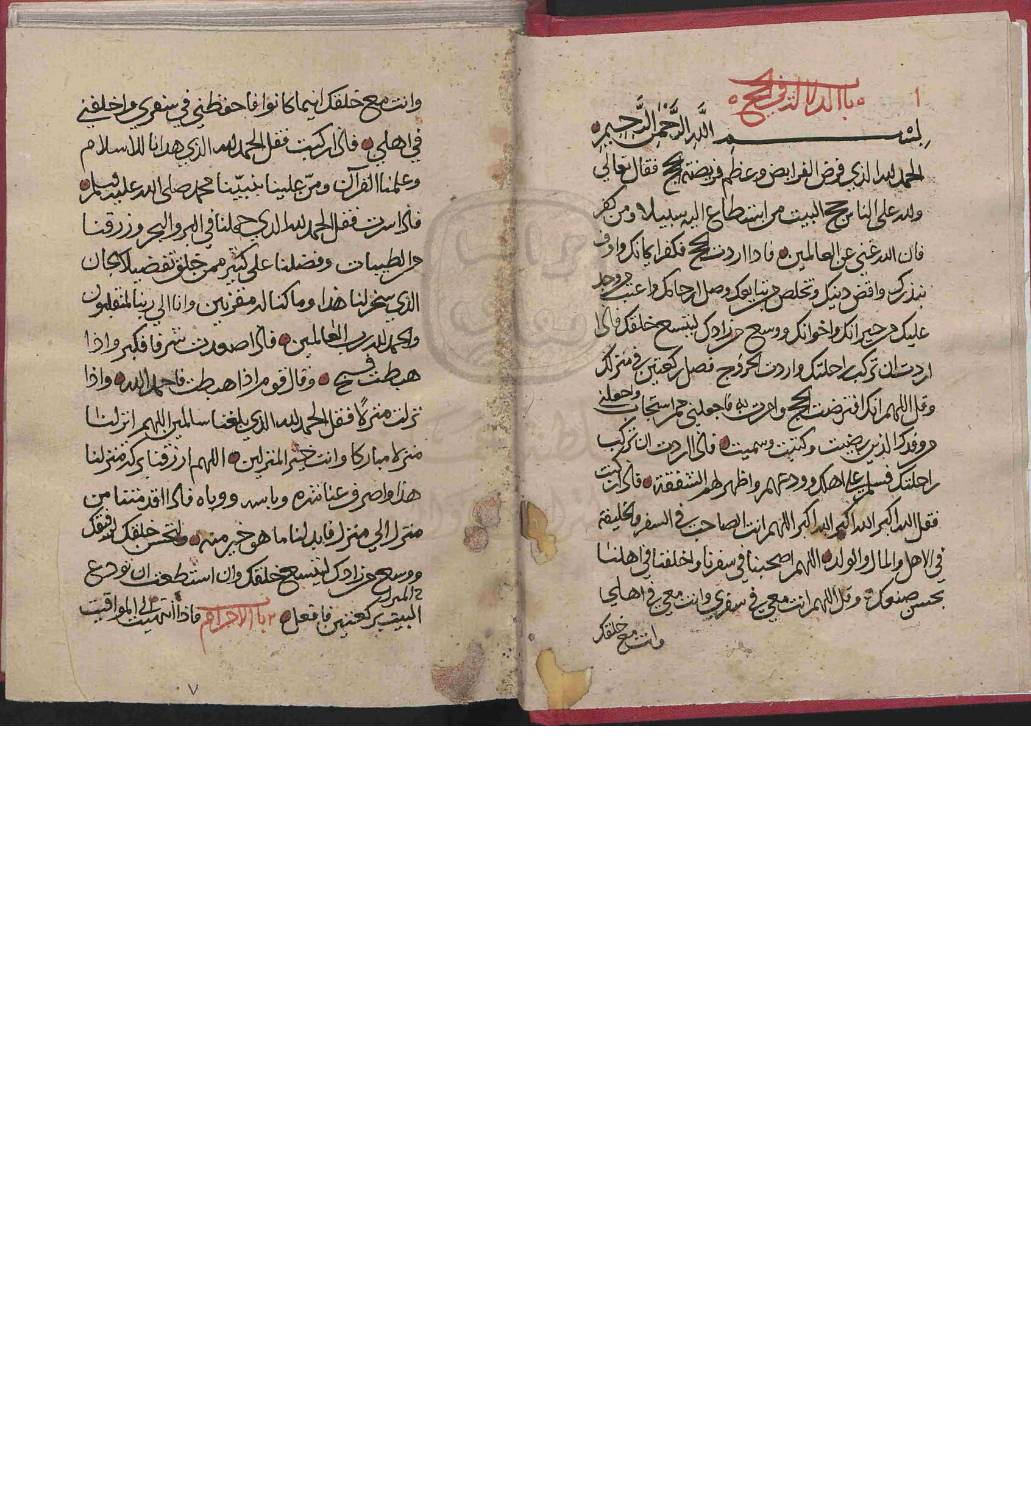 ١
باب الدلالة في الحج
بسم الله الرحمن الرحيم
الحمد لله الذي فرض الفرايض وعظم فريضته الحج فقال تعالي
ولله على الناس حج البيت من استطاع اليه سبيلا ومن كفر
فان الله غني عن العالمين فاذا اردت الحج فكفر ايمانك واوف
نذرك واقض دينك وتخلص من تبايعك وصل ارحامك واعتب من وجد
عليك من جيرانك واخوانك ووسع من زادك ليتسع خلقك فاذا
اردت ان تركب راحلتك واردت الخروج فصل ركعتين في منزلك
وقل اللهم انك افترضت الحج وامرت به فاجعلني ممن استجاب واجعلني
من وفدك الذين رضيت وكتبت وسميت فاذا اردت ان تركب
راحلتك فسلم على اهلك وودعهم واظهر لهم الشفقة فاذا ركبت
فقل الله اكبر الله اكبر الله اكبر اللهم انت الصاحب في السفر والخليفة
في الاهل والمال والولد اللهم اصحبنا في سفرنا واخلفنا في اهلنا
بحسن صنعك وقل اللهم انت معي في سفري وانت معي في اهلي
وانت مع خلقك
وانت مع خلقك اينما كانوا فاحفظني في سفري واخلفني
في اهلي فاذا ركبت فقل الحمد لله الذي هدانا للاسلام
وعلمنا القرآن ومن علينا بنبينا محمد صلى الله عليه وسلم
فاذا سرت فقل الحمد لله الذي حملنا في البر والبحر ورزقنا
من الطيبات وفضلنا على كثير ممن خلق تفضيلا سبحان
الذي سخر لنا هذا وما كنا له مقرنين وانا الي ربنا لمنقلبون
والحمد لله رب العالمين فاذا صعدت شرفا فكبر واذا
هبطت فسبح وقال قوم اذا هبطت فاحمد الله واذا
نزلت منزلا فقل الحمد لله الذي بلغنا سالمين اللهم انزلنا
منزلا مباركا وانت خير المنزلين اللهم ارزقنا بركة منزلنا
هذا واصرف عنا شره وباسه ووباه فاذا قدمتنا من
منزل الي منزل فابدلنا ما هو خير منه ولتحسن خلقك لرفقك
ووسع من زادك ليتسع خلقك وان استطعت ان تودع
المنزل
البيت بركعتين فافعل ٢ باب الاحرام فاذا انتهيت الى المواقيت
٧